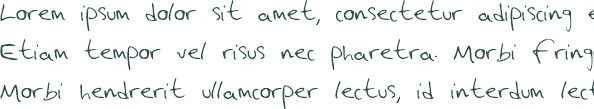 Lorem ipsum dolor sit amet, consectetur adipiscing
Etiam tempor vel risus nec pharetra. Morbi fring
Morbi hendrerit ullamcorper lectus, id interdum lect